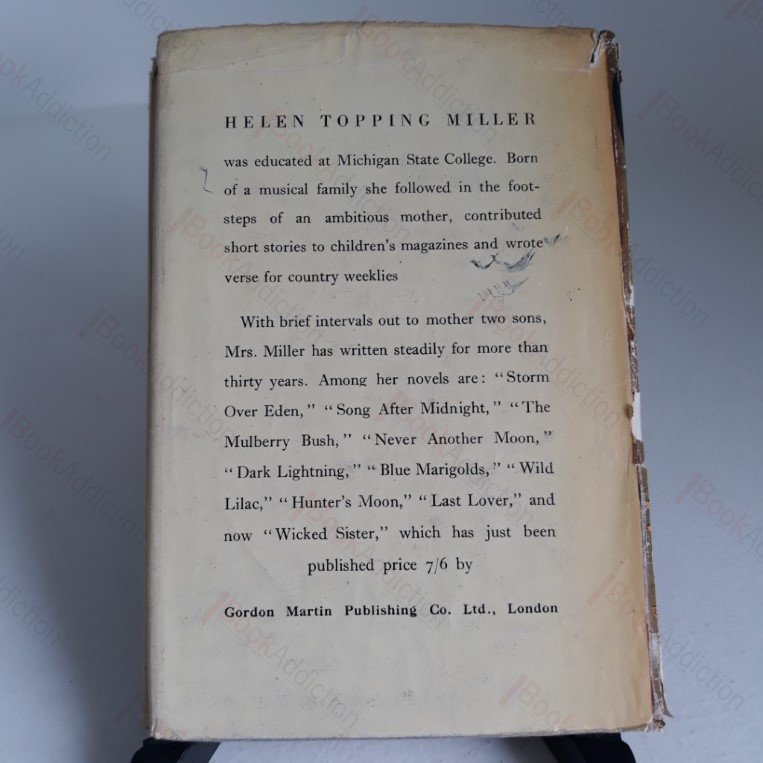 HELEN TOPPING MILLER
was educated at Michigan State College. Born
of a musical family she followed in the foot-
steps of an ambitious mother, contributed
short stories to children's magazines and wrote
verse for country weeklies
With brief intervals out to mother two sons,
Mrs. Miller has written steadily for more than
thirty years. Among her novels are: "Storm
Over Eden," "Song After Midnight," "The
Mulberry Bush," "Never Another Moon,"
"Dark Lightning," "Blue Marigolds," "Wild
Lilac," "Hunter's Moon," "Last Lover," and
now "Wicked Sister," which has just been
published price 7/6 by
Gordon Martin Publishing Co. Ltd., London
BookAddiction